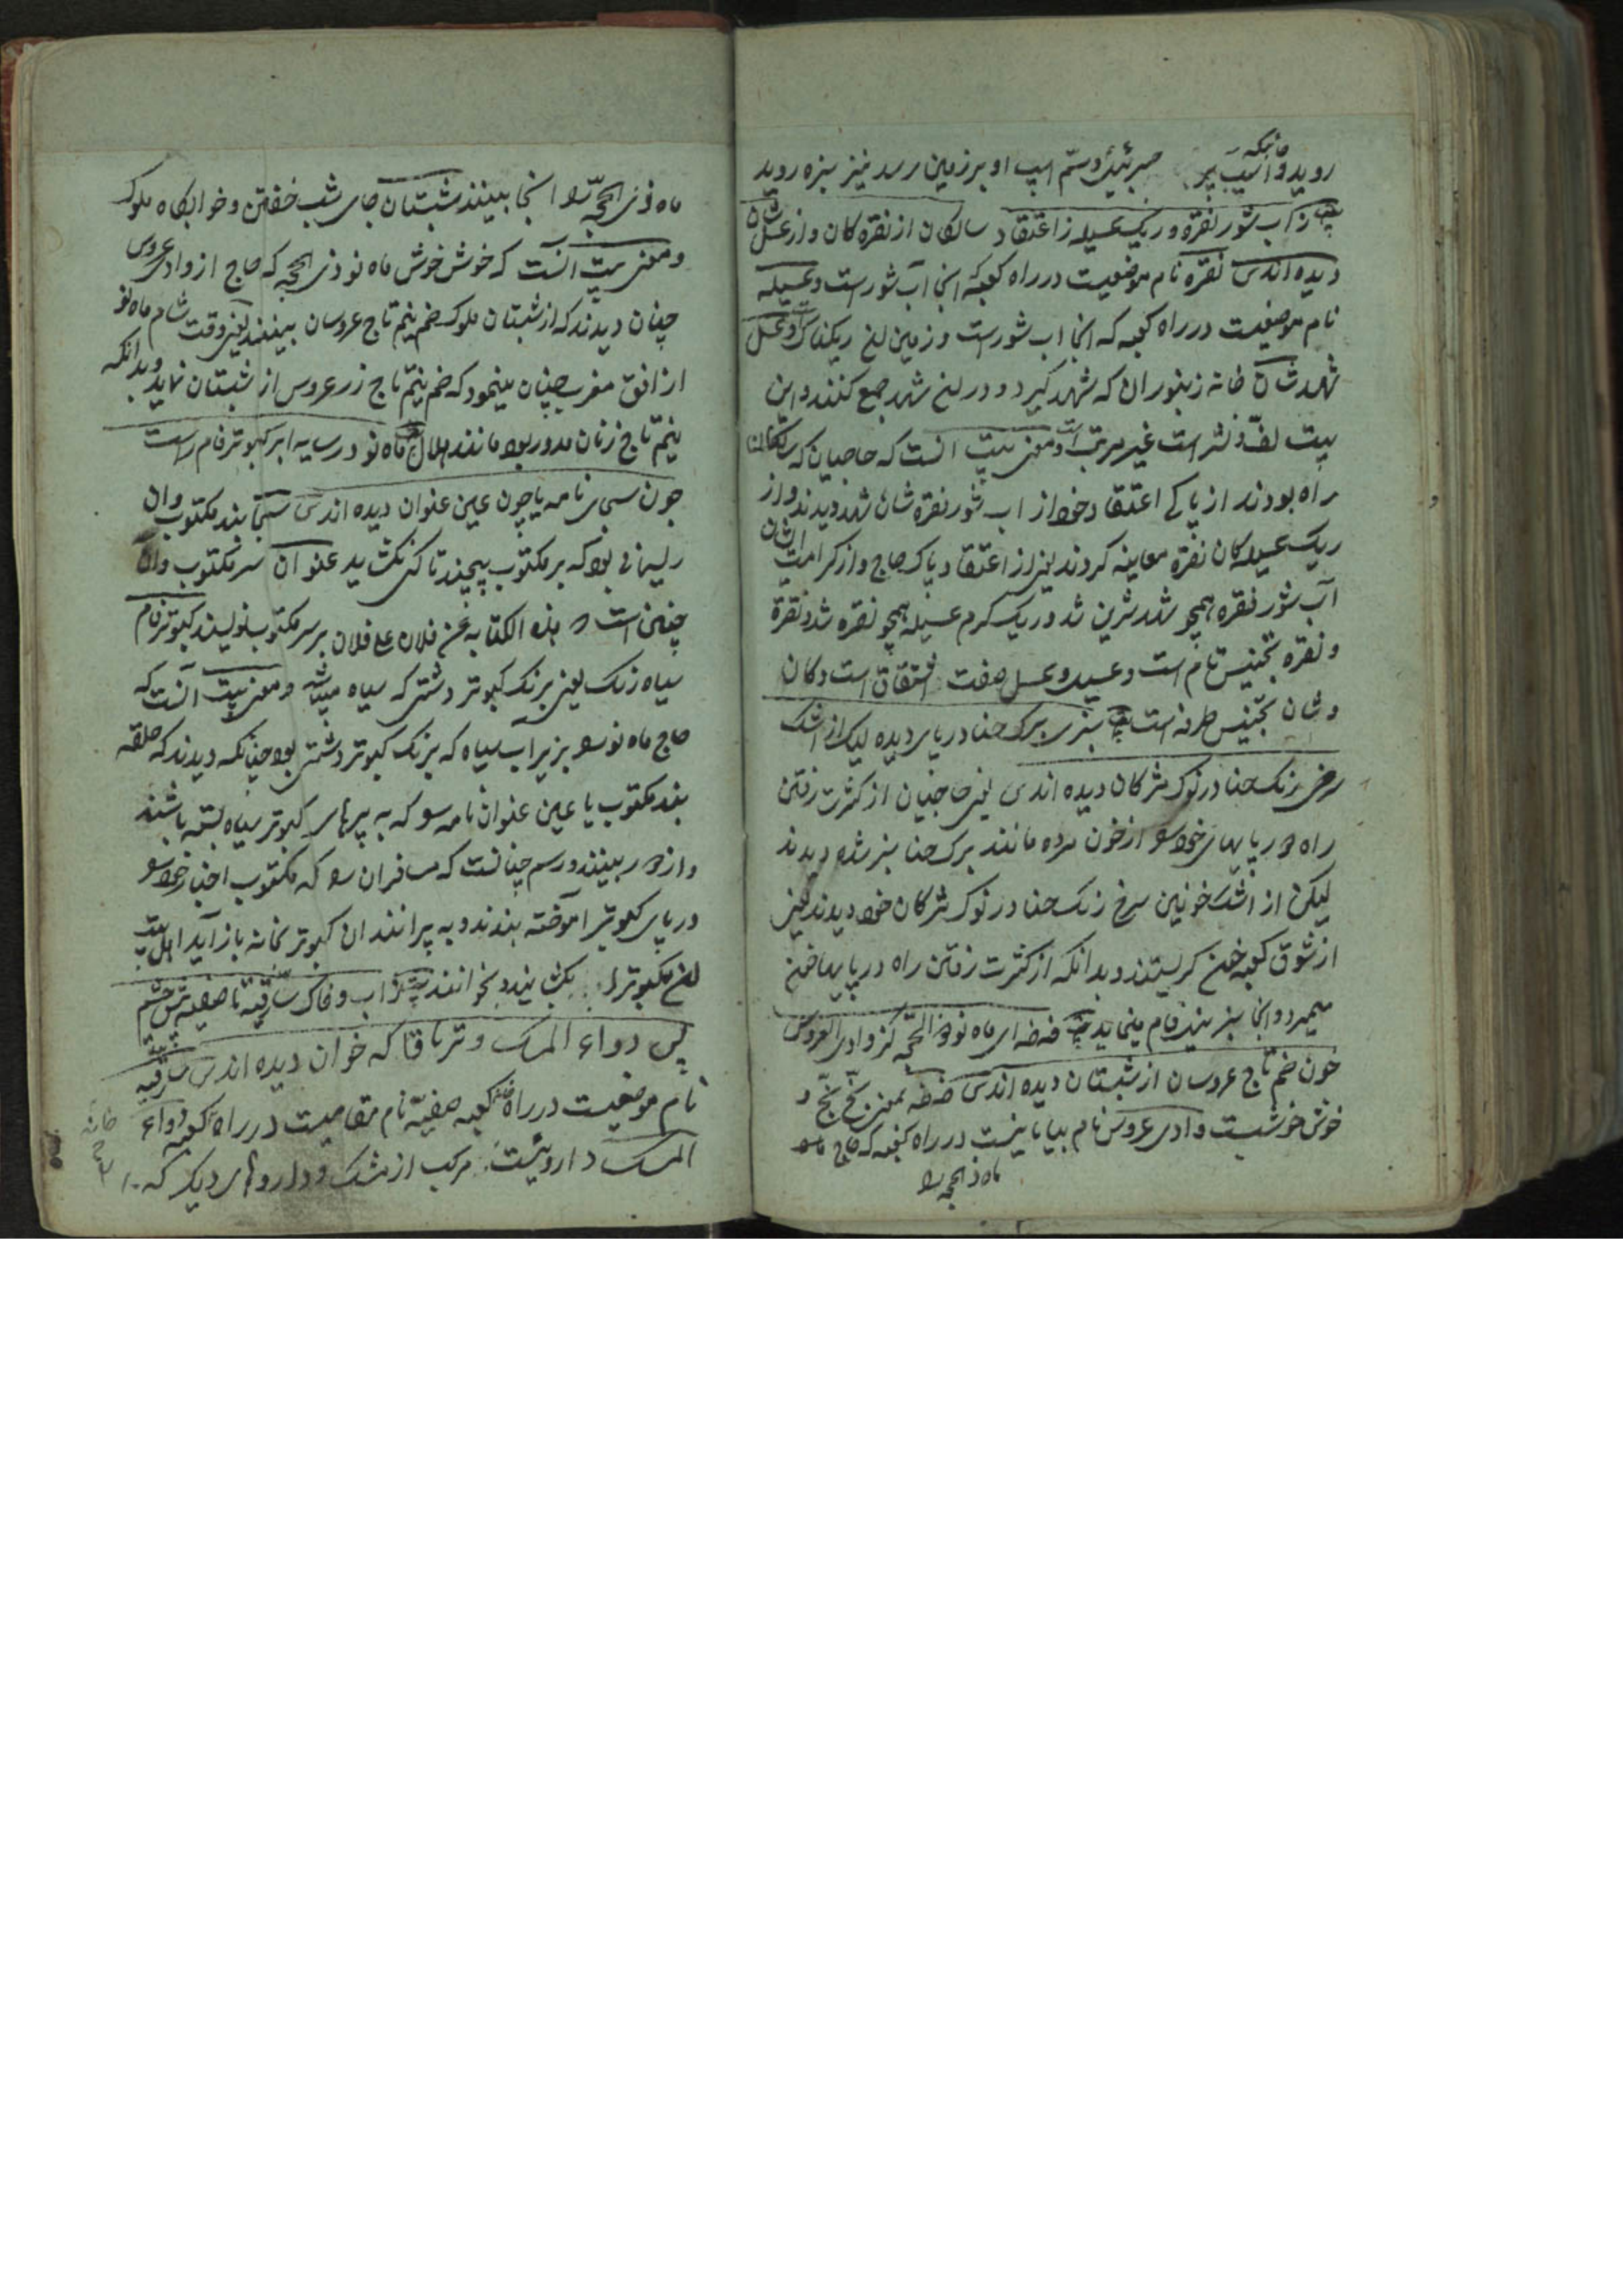 روید و آسیب پر جبرئیل و سم اسپ او بر زمین رسد نیز سبزه روید
ز اب شور نقره و ریک عسیله ز اعتقاد سالکان از نقره کان و از عسل شان
دیده اندس نقره نام موضعیست در راه کعبه که انجا آب شور است و عسیله
نام موضعیست در راه کعبه که انجا اب شورست و زمین ریکناک و عسل
شهد شان خانه زنبوران که شهد کیرد و در شهد جمع کنند و این
بیت لف و نشر است غیر مرتب و معنی بیت انست که حاجیان که
راه بودند از پاکی اعتقاد خود از اب شور نقره شان شهد دیدند و از
ریک عسیله کان نقره معاینه کردند یعنی از اعتقاد پاک حاج و از کرامت ایشان
آب شور نقره همچو شهد شیرین شد و ریک کرم عسیله همچو نقره شد و نقره
و نقره تجنیس تام است و عسیله و عسل صفت اشتقاق است و کان
و شان تجنیس طرفه است سبزی برک حنا در پای دیده لیک از اشک
سرخی رنک حنا در نوک مژکان دیده اندس یعنی حاجیان از کثرت رفتن
راه در پایهای خود از خون مرده مانند برک حنا سبز شده دیدند
لیکن از اشک خونین سرخ رنک حنا در نوک مژکان خود دیدند یعنی
از شوق کعبه خون کریستند و بدانکه از کثرت رفتن راه در پایها خون
میمیرد و انجا سبز فام مینماید خه خه ای ماه نو ذی الحجه کز وادی العروس
چون خم تاج عروسان از شبستان دیده اندس خه خه بمعنی بخ بخ و
خوش خوشست وادی عروس نام بیابانیست در راه کعبه که حاج
ماه ذی الحجه
ماه ذی الحجه را انجا بینند شبستان جای شب خفتن و خوابکاه ملوک
و معنی بیت انست که خوش خوش ماه نو ذی الحجه که حاج از وادی عروس
چنان دیدند که از شبستان ملوک خم نیم تاج عروسان بینند یعنی وقت شام ماه نو
از افق مغرب چنان مینمود که خم نیم تاج زر عروس از شبستان نماید و بدانکه
نیم تاج زنان مدور بود مانند هلال ماه نو در سایه ابر کبوتر فام راست
چون سحای نامه یا چون عین عنوان دیده اندس سحا بند مکتوب و ان
ریسمانی بود که بر مکتوب پیچند تا کس نکشاید عنوان سر مکتوب و ان
چنین است هذه الکتابه من فلان علی فلان بر سر مکتوب نویسند کبوتر فام
سیاه رنک یعنی برنک کبوتر دشتی که سیاه میباشد و معنی بیت آنست که
حاج ماه نو بزیر اب سیاه که برنک کبوتر دشتی بود چنانکه دیدند که حلقه
بند مکتوب یا عین عنوان نامه که به پرهای کبوتر سیاه بسته باشند
و از دور بینند و رسم چنانست که مسافران که مکتوب اخبار خود
در پای کبوتر آموخته بندند و به پرانند ان کبوتر بخانه باز آید اهل بیت
بکشایند و بخوانند ز اب و خاک سارقیه تا صفینه ز چشم
پس دواء المسک و تریاقا که خوان دیده اندس سارقیه
نام موضعیست در راه کعبه صفینه نام مقامیست در راه کعبه دواء
المسک داروئیست مرکب از مشک و داروهای دیکر که